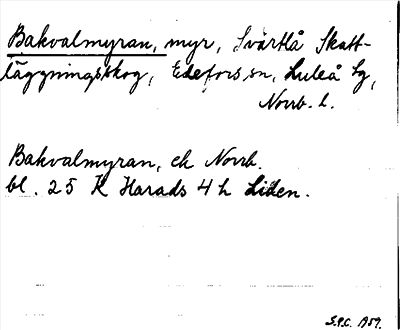 Bakvalmyran, myr, Svartlå Skatt-
läggningsskog, Edefors sn, Luleå tg,
Norrb. l.
Bakvalmyran, ek Norrb.
bl. 25 K Harads 4 h Liden.
S.P.C. 1959.